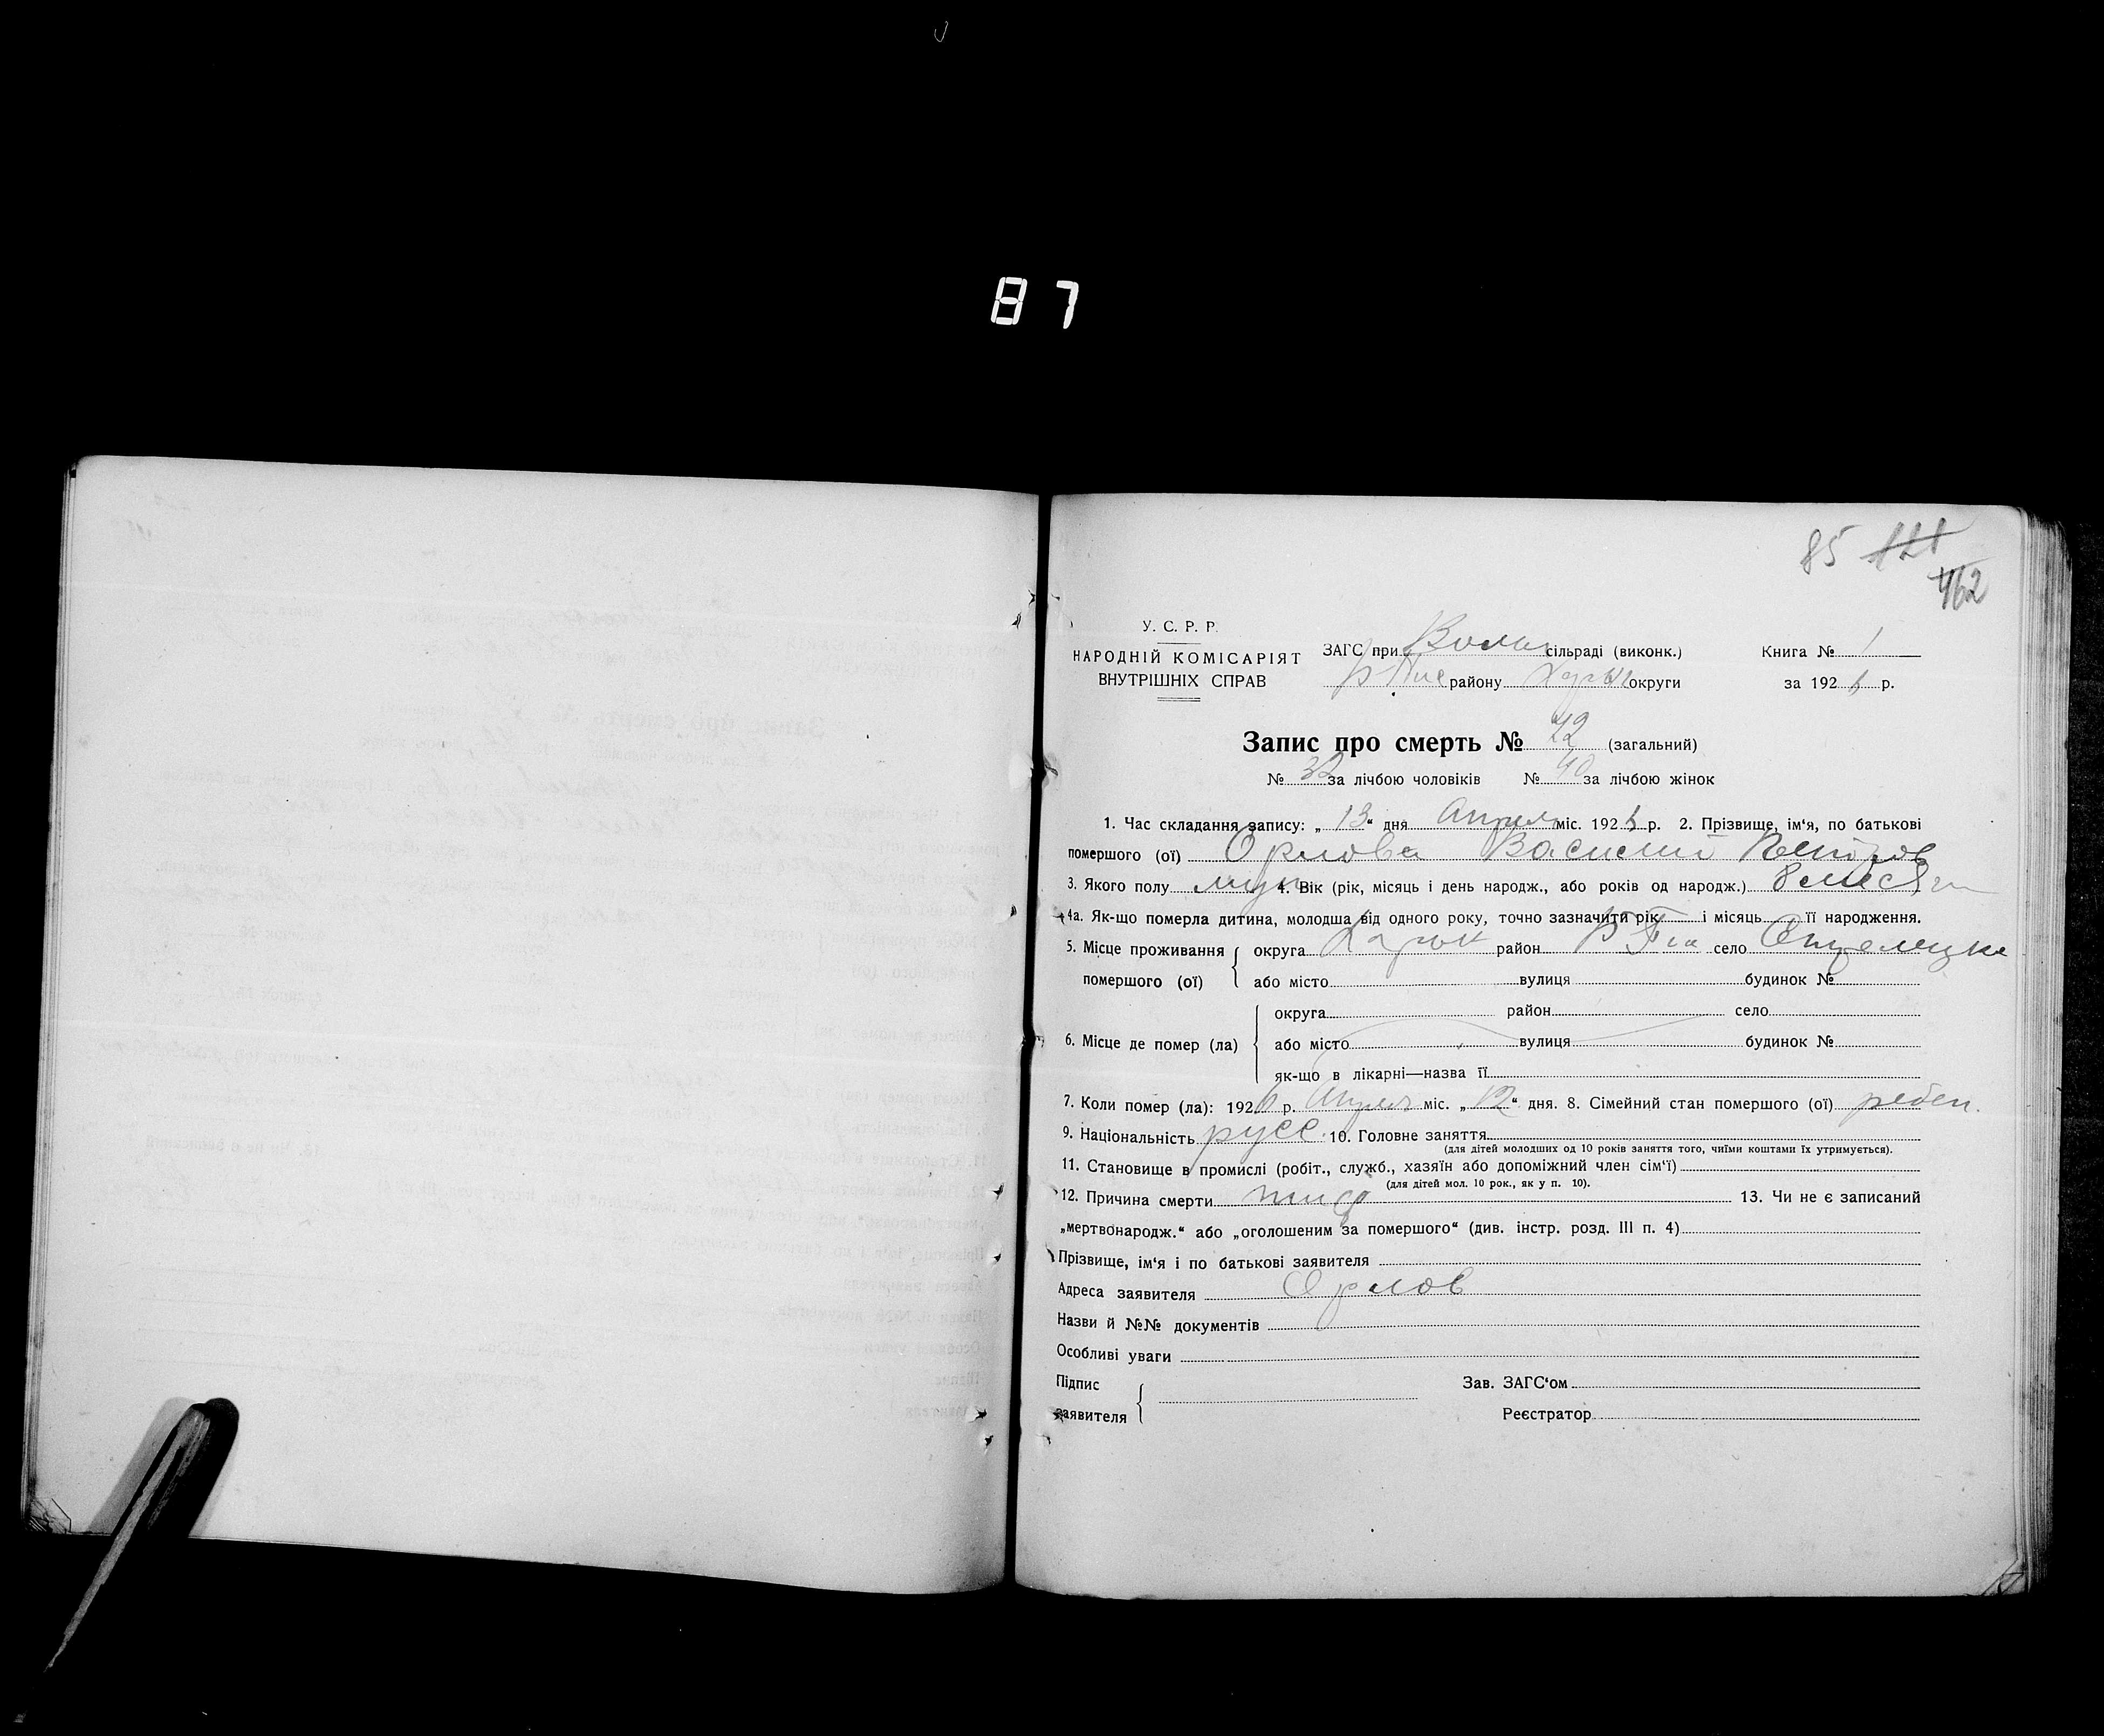 87
85 121
462
У. С. Р. Р.
НАРОДНІЙ КОМІСАРІЯТ
ВНУТРІШНІХ СПРАВ
ЗАГС при сільраді (виконк.)
району округи
Книга № 1
за 192 6 р.
Запис про смерть № (загальний)
№ 32 за лічбою чоловіків № 40 за лічбою жінок
1. Час складання запису: „ 13 “ дня Апреля міс. 192 6 р. 2. Прізвище, ім‘я, по батькові
помершого (ої) Орлова Василий Петров
3. Якого полу муж 4. Вік (рік, місяць і день народж., або років од народж.) 8 месяц
4а. Як-що померла дитина, молодша від одного року, точно зазначити рік і місяць її народження.
5. Місце проживання округа Харьк район село
помершого (ої) або місто вулиця будинок №
округа район село
6. Місце де помер (ла) або місто вулиця будинок №
як-що в лікарні—назва її
7. Коли помер (ла): 192 6 р. Апреля міс. „ 12 “ дня. 8. Сімейний стан помершого (ої) ребен.
9. Національність русс. 10. Головне заняття
(для дітей молодших од 10 років заняття того, чиїми коштами їх утримується).
11. Становище в промислі (робіт., служб., хазяїн або допоміжний член сім‘ї)
(для дітей мол. 10 рок., як у п. 10).
12. Причина смерти тиф 13. Чи не є записаний
„мертвонародж.“ або „оголошеним за помершого“ (див. інстр. розд. III п. 4)
Прізвище, ім‘я і по батькові заявителя
Адреса заявителя Орлов
Назви й №№ документів
Особливі уваги
Підпис
заявителя
Зав. ЗАГС‘ом
Реєстратор